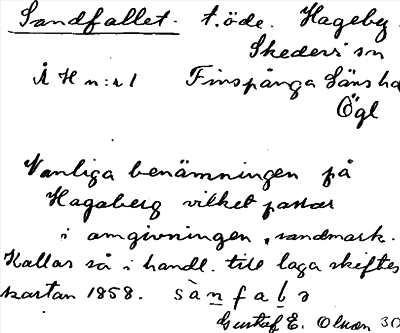 Sandfallet. t. öde. Hageby
Skedevi sn
Å H n:r 1 Finspånga Läns hd
Ögl
Vanliga benämningen på
Hagaberg vilket passar
i omgivningen, sandmark.
Kallas så i handl. till laga skiftes
kartan 1858. sànfalə
Gustaf E. Olsson 30